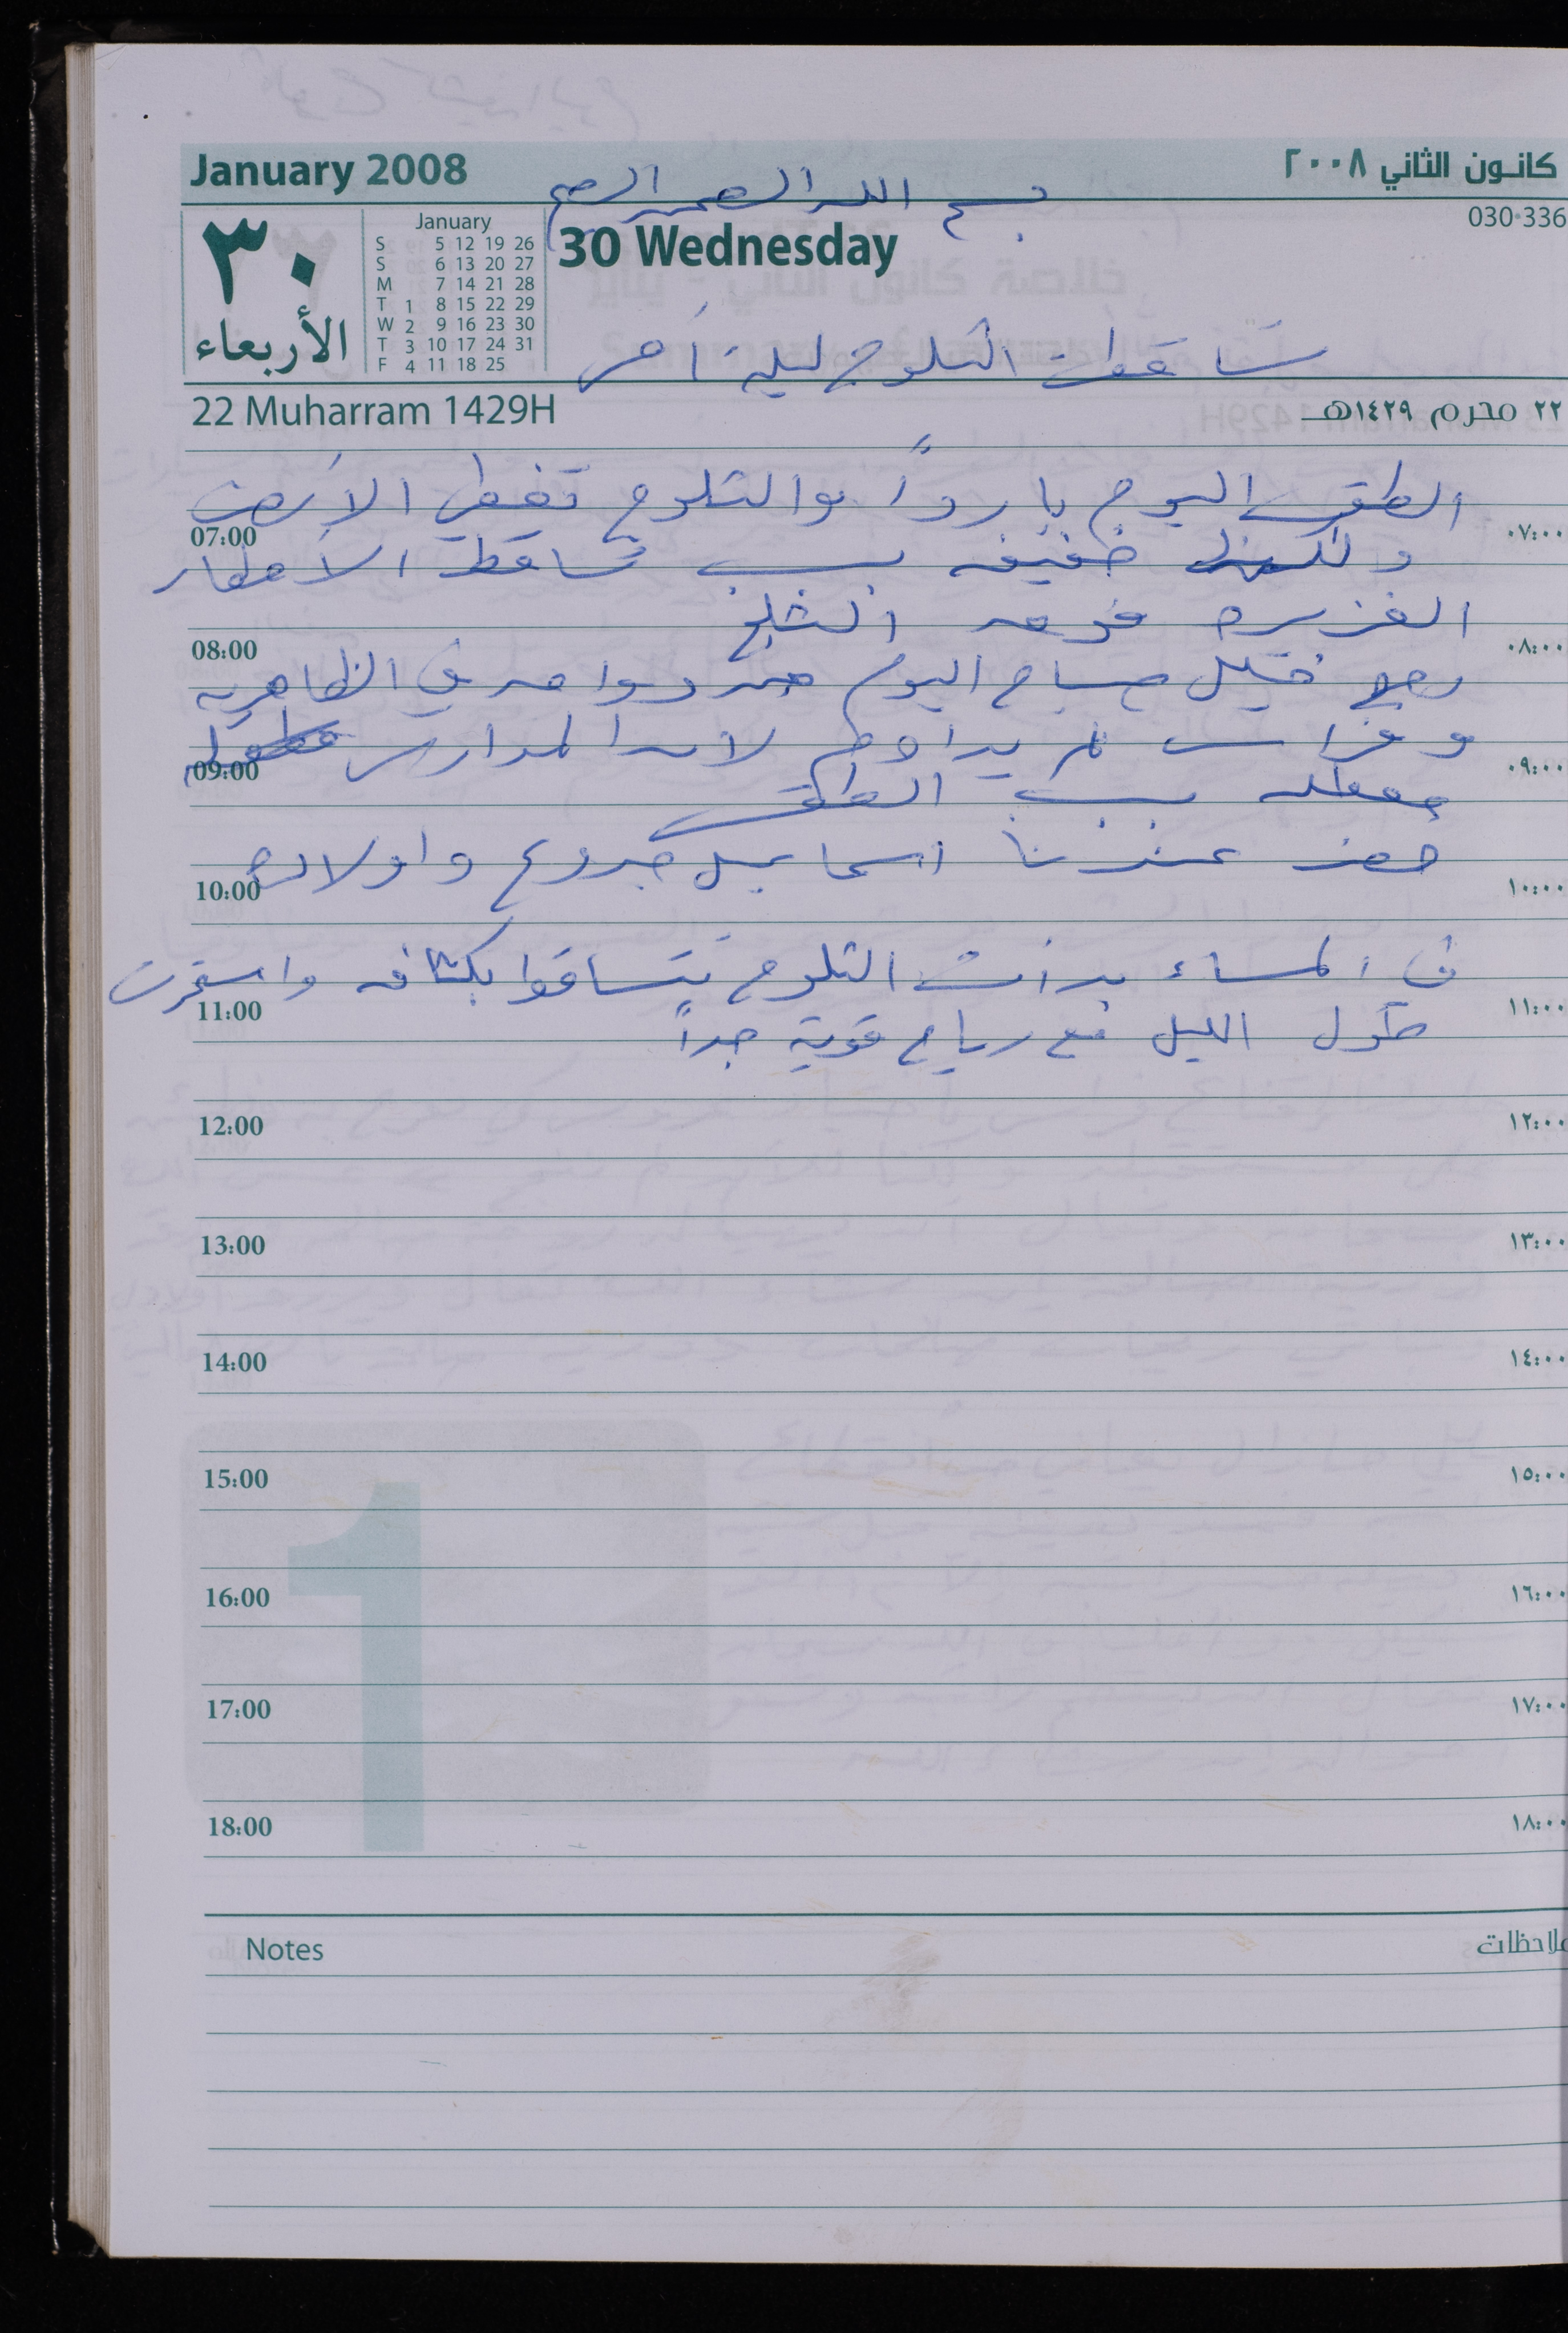 January 2008
كانون الثاني ٢٠٠٨
بسم الله الرحمن الرحيم
030-336
٣٠
الأربعاء
January
S 5 12 19 26
S 6 13 20 27
M 7 14 21 28
T 1 8 15 22 29
W 2 9 16 23 30
T 3 10 17 24 31
F 4 11 18 25
30 Wednesday
تساقطت الثلوج ليلة أمس
22 Muharram 1429H
٢٢ محرم ١٤٢٩هـ
الطقس اليوم بارداً والثلوج تغطي الأرض
07:00 ٠٧:٠٠
ولكنها خفيفه بسبب تساقط الأمطار
الغزيره فوق الثلج
08:00 ٠٨:٠٠
رجع خليل صباح اليوم من دوامه في الظاهريه
وفراس لم يداوم لان المدارس
09:00 ٠٩:٠٠
معطله بسبب الطقس
حضر عندنا اسماعيل جدوع واولاده
10:00 ١٠:٠٠
في المساء بدأت الثلوج تتساقوا بكثافه واستمرت
11:00 ١١:٠٠
طول الليل مع رياح قوية جداً
12:00 ١٢:٠٠
13:00 ١٣:٠٠
14:00 ١٤:٠٠
15:00 ١٥:٠٠
16:00 ١٦:٠٠
17:00 ١٧:٠٠
18:00 ١٨:٠٠
1
Notes
ملاحظات